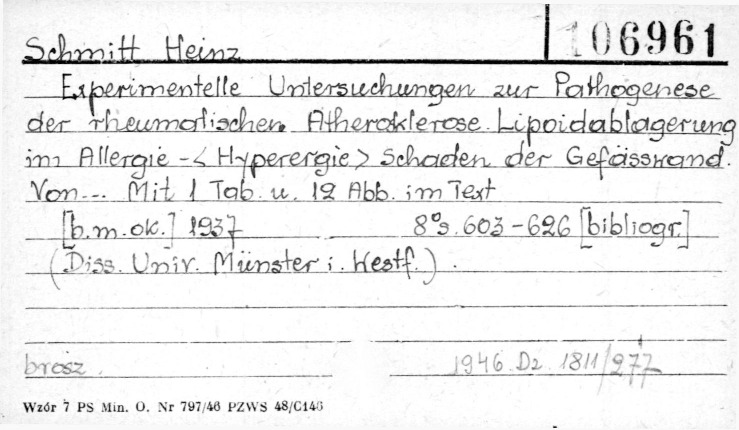 Schmitt Heinz
106961
Experimentelle Untersuchungen zur Pathogenese
der rheumatischen Atherosklerose. Lipoidablagerung
im Allergie -< Hyperergie> schaden der Gefässwand.
Von... Mit 1 Tab. u. 12 Abb. im Text
[b.m.ok.] 1937 8°s. 603-626 [bibliogr.]
(Diss. Univ. Münster i. Westf.).
brosz. 1946 Dz 1811/277
Wzór 7 PS Min. O. Nr 797/46 PZWS 48/C146